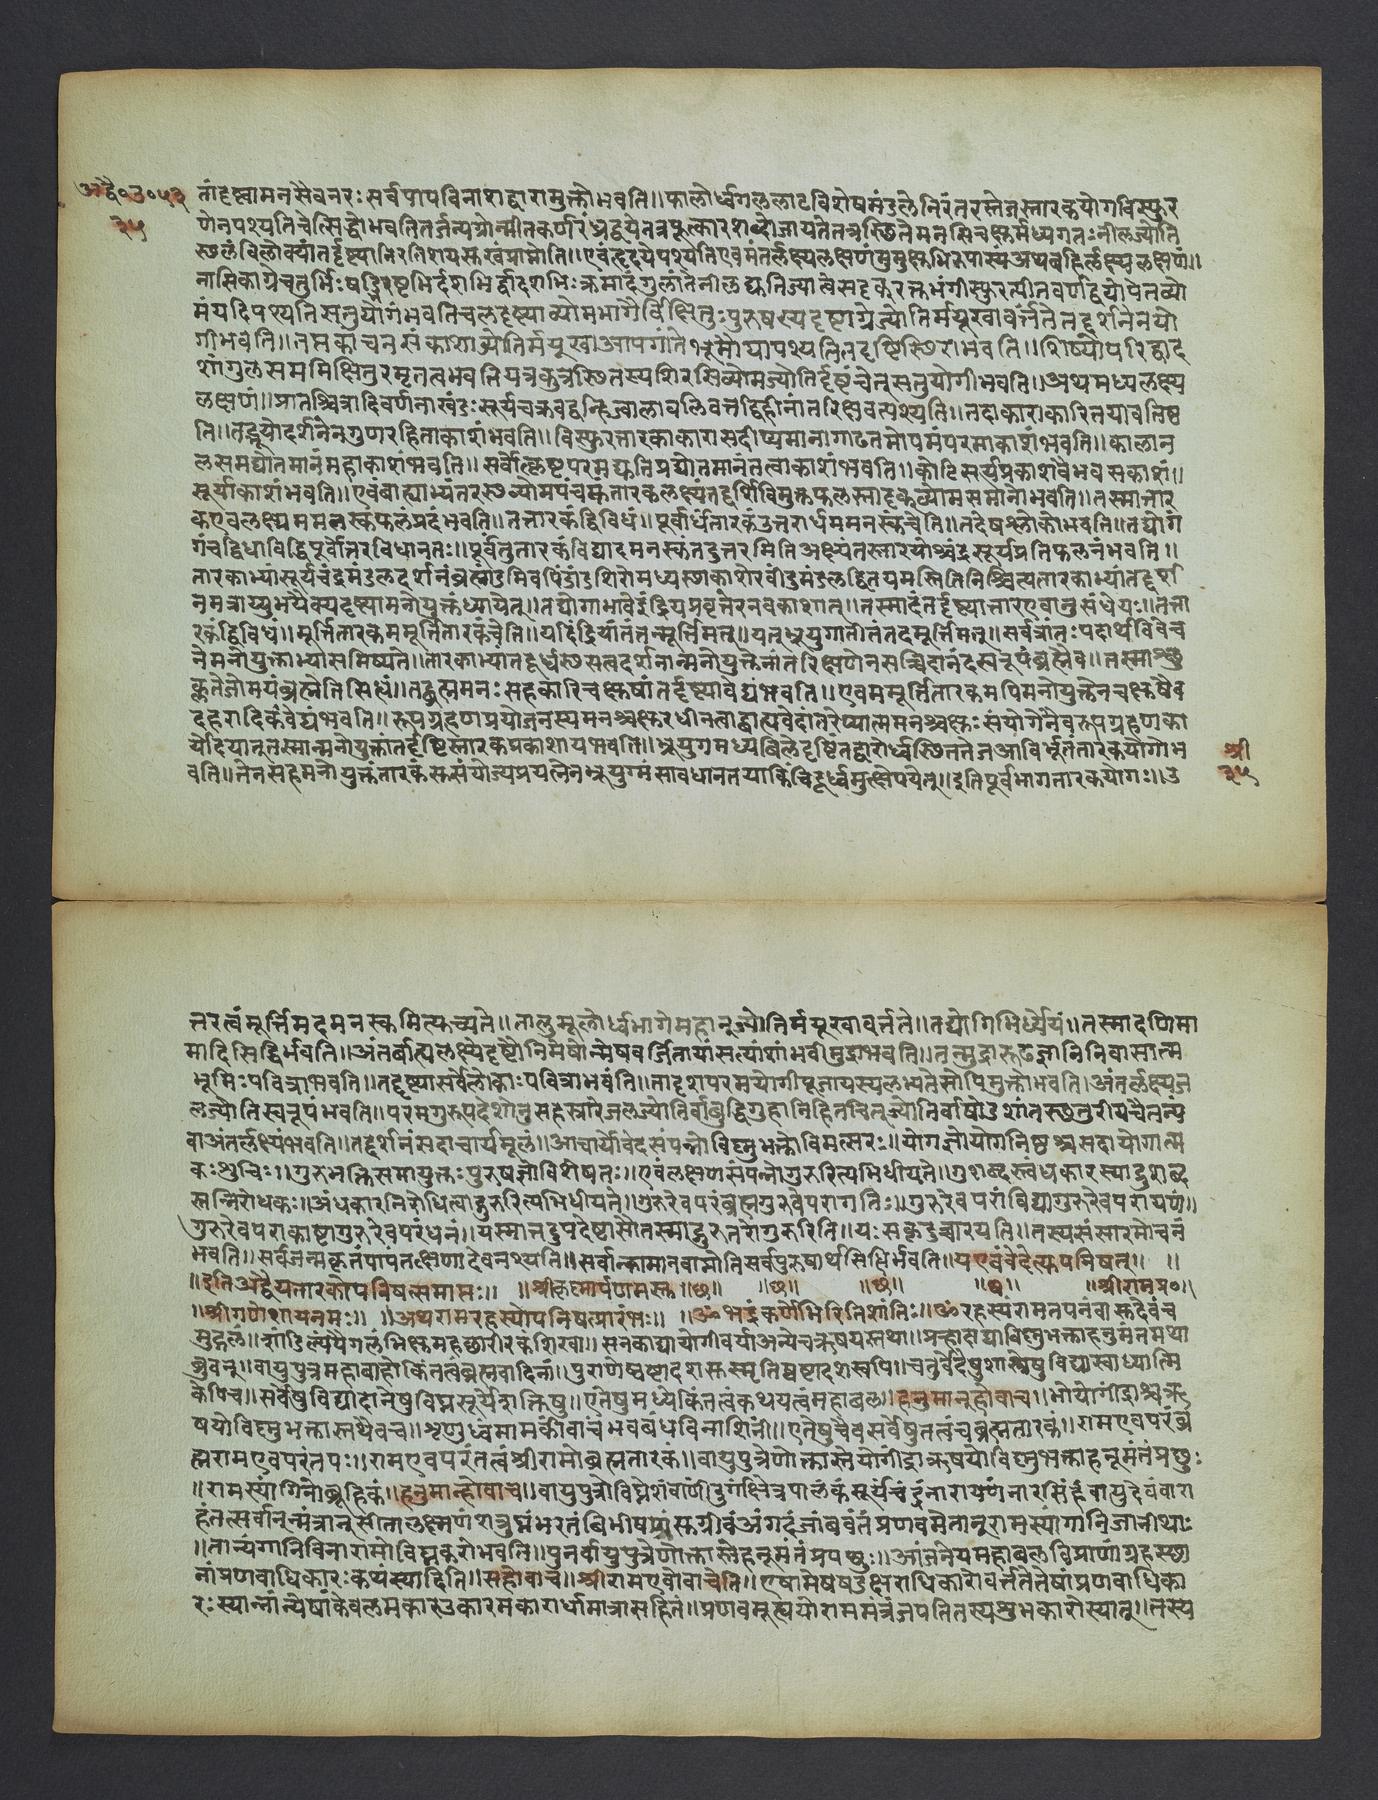 अद्वै०उ०५३ तांदृष्ट्वामनसैवनरः सर्वपापविनाशद्वारामुक्तोभवति॥फालोर्ध्वगललाटविशेषमंडलेनिरंतरस्तेजस्तारकयोगविस्फुर
३५ णेनपश्यतिचेत्सिद्धोभवतितर्जन्यग्रोन्मीतकर्णरंध्रद्वयेतत्रफूत्कारशब्दोजायतेतत्रस्थितेमनसिचक्षुर्मध्यगतःनीलज्योति
स्थलंविलोक्यांतर्दृष्ट्यानिरतिशयसुखंप्राप्नोति॥एवंहृदयेपश्यतिएवमंतर्लक्ष्यलक्षणंमुमुक्षुभिरुपास्यंअथबहिर्लक्ष्यलक्षणं॥
नासिकाग्रेचतुर्भिःषड्भिरष्टभिर्दशभिर्द्वादशभिःक्रमादंगुलांतेनीलद्युतिश्यामत्वसदृकुरक्तभंगीस्फुरत्पीतवर्णद्वयोपेतव्यो
मंयदिपश्यतिसतुयोगंभवतिचलदृष्ट्याव्योमभागेवीक्षितुःपुरुषस्यदृष्ट्यग्रेज्योतिर्मयूखावर्त्ततेतद्दर्शनेनयो
गीभवति॥तप्तकांचनसंकाशाज्योतिर्मयूखाअपांगांतेभूमौवापश्यतितदृष्टिस्थिराभवति॥शिर्ष्योपरिद्वाद
शांगुलसममिक्षितुरमृतत्वंभवतियत्रकुत्रस्थितस्यशिरसिव्योमज्योतिर्दृष्टंचेत्तुसतुयोगीभवति॥अथमध्यलक्ष्य
लक्षणं॥प्रातश्चित्रादिवर्णनाखंडःसूर्यचक्रवद्वन्हिज्वालावलिवत्तद्विहीनांतरिक्षवत्पश्यति॥तदाकाराकारितयावतिष्ठ
ति॥तद्भूयोदर्शनेनगुणरहिताकाशंभवति॥विस्फुरत्तारकाकारासदीप्यमानागाढतमोपमंपरमाकाशंभवति॥कालान
लसमद्योतमानंमहाकाशंभवति॥सर्वोत्कृष्टपरमद्युतिप्रद्योतमानंतत्वाकाशंभवति॥कोटिसूर्यप्रकाशवैभवसकाशं॥
सूर्याकाशंभवति॥एवंबाह्याभ्यंतरस्थव्योमपंचकंतारकलक्ष्यंतद्दर्शिविमुक्तफलस्तादृक्व्योमसमानोभवति॥तस्मात्तार
कएवलक्ष्यममनस्कफलप्रदंभवति॥तत्तारकंद्विविधं॥पूर्वार्धंतारकंउत्तरार्धममनस्कंचेति॥तदेषश्लोकोभवति॥तद्योगं
गंचद्विधाविद्धिपूर्वोत्तरविधानतः॥पूर्वंतुतारकंविद्यादमनस्कंतदुत्तरमितिअक्ष्यंतस्तारयोश्चंद्रसूर्यप्रतिफलनंभवति॥
तारकाभ्यांसूर्यचंद्रमंडलदर्शनंब्रह्मांडमिवपिंडांडशिरोमध्यस्थाकाशेरवींदुमंडलद्वितयमस्तितिनिश्चित्यतारकाभ्यांतद्दर्श
नमत्राप्युभयैक्यदृष्ट्यामनोयुक्तंध्यायेत्॥तद्योगाभावेइंद्रियप्रवृत्तेरनवकाशात्॥तस्मादंतर्दृष्ट्यातारएवानुसंधेयः॥तत्ता
रकंद्विविधं॥मूर्त्तितारकममूर्त्तितारकंचेति॥यदिंद्रियांतंतन्मूर्त्तिमत्॥यत्भ्रूयुगातीतंतदमूर्त्तिमत्॥सर्वत्रांतःपदार्थविवेच
नेमनोयुक्ताभ्यासमिष्यते॥तारकाभ्यांतदूर्ध्वस्थसत्वदर्शनान्मनोयुक्तेनांतरिक्षणेनसच्चिदानंदस्वरूपंब्रह्मैव॥तस्माछु
क्लतेजोमयंब्रह्मेतिसिध्यं॥तद्ब्रह्ममनःसहकारिचक्षुषांतर्दृष्ट्यावेद्यंभवति॥एवममूर्त्तितारकमपिमनोयुक्तेनचक्षुषैव
दहरादिकंवेद्यंभवति॥रूपग्रहणप्रयोजनस्यमनश्चक्षुरधीनत्वाद्बाह्यवेदांतरेप्यात्ममनश्चक्षुःसंयोगेनैवरूपग्रहणका
र्योदयात्ततस्मान्मनोयुक्तांतर्दृष्टिस्तारकप्रकाशायभवति॥भ्रूयुगमध्यबिलेदृष्टिंतद्द्वारोर्ध्वस्थिततेजआविर्भूतंतारकयोगोभ श्री
वति॥तेनसहमनोयुक्तंतारकंसुसंयोज्यप्रयत्नेनभ्रूयुग्मंसावधानतयाकिंचिदूर्ध्वमुत्क्षेपयेत्॥इतिपूर्वभागतारकयोगः॥उ ३५
त्तरत्वंमूर्त्तिमदमनस्कमित्युच्यते॥तालुमूलोर्ध्वभागेमहान्ज्योतिर्मयूखावर्त्तते॥तद्योगिभिर्ध्येयं॥तस्मादणिमा
मादिसिद्धिर्भवति॥अंतर्बाह्यलक्ष्येदृष्टौनिमेषोन्मेषवर्जितायांसत्यांशांभवीमुद्राभवति॥तन्मुद्रारूढज्ञानिनिवासात्म
भूमिःपवित्राभवति॥तदृष्ट्यासर्वेलोकाःपवित्राभवंति॥तादृशपरमयोगीपूजायस्यलभ्यतेसोपिमुक्तोभवति।अंतर्लक्ष्यज
लज्योतिस्वरूपंभवति॥परमगुरूपदेशेनसहस्रारेजलज्योतिर्वाबुद्धिगुहानिहितचित्ज्योतिर्वाषोडशांतस्थतुरीयचैतन्यं
वाअंतर्लक्ष्यंभवति॥तद्दर्शनंसदाचार्यमूलं॥आचार्योवेदसंपन्नोविष्णुभक्तोविमत्सरः॥योगज्ञोयोगनिष्ठश्चसदायोगात्म
कःशुचिः॥गुरुभक्तिसमायुक्तःपुरुषज्ञोविशेषतः॥एवंलक्षणसंपन्नोगुरुरित्यभिधीयते॥गुशब्दस्त्वंधकारस्याद्रुशब्द
स्तन्निरोधकः॥अंधकारनिरोधित्वाद्गुरुरित्यभिधीयते॥गुरुरेवपरंब्रह्मगुरुरेवपरागतिः॥गुरुरेवपरांविद्यागुरुरेवपरायणं॥
गुरुरेवपराकाष्ठागुरुरेवपरंधनं॥यस्मात्तदुपदेष्टासौतस्माद्गुरुतरोगुरुरिति॥यःसकृदुच्चारयति॥तस्यसंसारमोचनं
भवति॥सर्वजन्मकृतंपापंतत्क्षणादेवनश्यति॥सर्वान्कामानवाप्नोतिसर्वपुरुषार्थसिद्धिर्भवति॥यएवंवेदेत्युपनिषत्॥ ॥
॥इतिअद्वैयतारकोपनिषत्समाप्तः॥ ॥श्रीकृष्णार्पणमस्तु॥छ॥ ॥छ॥ ॥छ॥ ॥छ॥ ॥श्रीरामप्र०॥
॥श्रीगणेशायनमः॥ ॥अथरामरहस्योपनिषत्प्रारंभः॥ ॥ॐभद्रंकर्णेभिरितिशांतिः॥ॐरहस्यंरामतपनंवासुदेवंच
मुद्गल॥शांडिल्यंपैंगलंभिक्षुमहछारीरकंशिखा॥सनकाद्यायोगीवर्याअन्येचऋषयस्तथा॥प्रन्हादाद्याविष्णुभक्ताहनुमंतमथा
ब्रुवन्॥वायुपुत्रमहाबाहोकिंतत्वंब्रह्मवादिनां॥पुराणेष्वष्टादशसुस्मृतिष्वष्टादशस्वपि॥चतुर्वेदेषुशास्त्रेषुविद्यास्वाध्यात्मि
केपिच॥सर्वेषुविद्यादानेषुविघ्नसूर्येशशक्तिषु॥एतेषुमध्येकिंतत्वंकथयत्वंमहाबल॥हनुमान्होवाच॥भोयोगींद्राश्चऋ
षयोविष्णुभक्तास्तथैवच॥शृणुध्वंमामकींवाचंभवबंधविनाशिनीं॥एतेषुचैवसर्वेषुतत्वंचब्रह्मतारकं॥रामएवपरंब्र
ह्मरामएवपरंतपः॥रामएवपरंतत्वंश्रीरामोब्रह्मतारकं॥वायुपुत्रेणोक्तास्तेयोगींद्राऋषयोविष्णुभक्ताहनूमंतंप्रछुः
॥रामस्यांगानिनोब्रूहिकं॥हनुमान्होवाच॥वायुपुत्रोविघ्नेशंवाणींदुर्गांक्षेत्रपालकंसूर्यंचंद्रंनारायणंनारसिंहंवायुदेवंवारा
हंतत्सर्वान्मंत्रान्सीतालक्ष्मणंशत्रुघ्नंभरतंबिभीषणंसुग्रीवंअंगदंजांबवंतंप्रणवमेतान्रामस्यांगानिजानीथाः
॥तान्यंगानिविनारामोविघ्नकरोभवति॥पुनर्वायुपुत्रेणोक्तास्तेहनूमंतंप्रपछुः॥आंजनेयमहाबलविप्राणांगृहस्था
नांप्रणवाधिकारःकथंस्यादिति॥सहोवाच॥श्रीरामएवोवाचेति॥एषामेवषडक्षराधिकारोवर्त्ततेतेषांप्रणवाधिका
रःस्यान्नान्येषांकेवलमकारउकारमकारार्धमात्रासहितं॥प्रणवमूह्ययोराममंत्रंजपतितस्यशुभकारोस्यात्॥तस्य